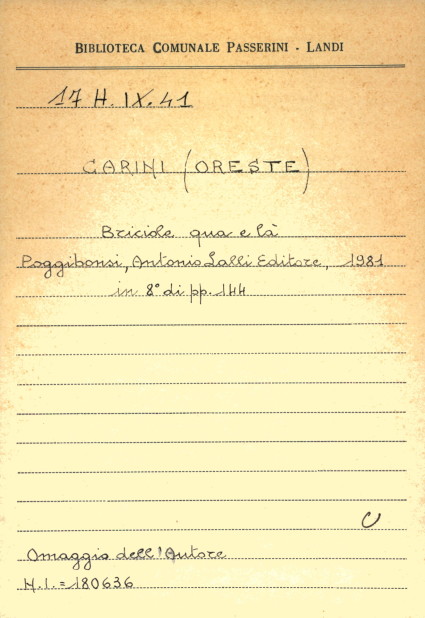 BIBLIOTECA COMUNALE PASSERINI - LANDI
17 H. IX. 41
GARINI (ORESTE)
Briciole qua e là
Poggibonsi, Antonio Lalli Editore, 1981
in 8° di pp. 144
U
Omaggio dell'Autore
N.I. = 180636